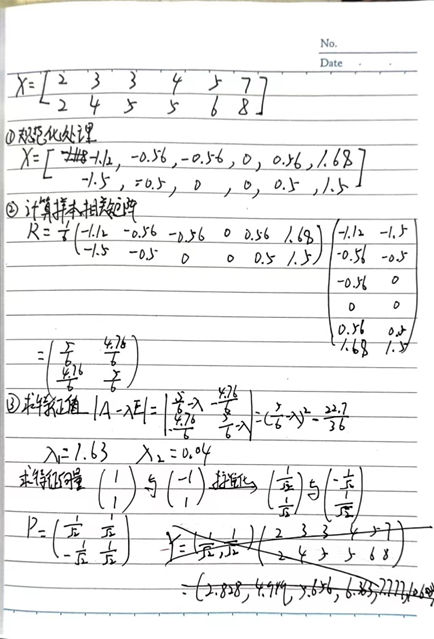 No.
Date
X = [ 2 3 3 4 5 7
2 4 5 5 6 8 ]
① 规范化处理
X = [ -1.12, -0.56, -0.56, 0, 0.56, 1.68
-1.5, -0.5, 0, 0, 0.5, 1.5 ]
② 计算样本相关矩阵
R = 1/6 ( -1.12 -0.56 -0.56 0 0.56 1.68 ) ( -1.12 -1.5
-1.5 -0.5 0 0 0.5 1.5 -0.56 -0.5
-0.56 0
0 0
0.56 0.5
1.68 1.5 )
= ( 5/6 4.76/6
4.76/6 5/6 )
③ 求特征值 |A-λE| = | 5/6-λ -4.76/6
-4.76/6 5/6-λ | = (5/6-λ)² - 22.7/36
λ₁=1.63 λ₂=0.04
求特征向量 ( 1 1 ) 与 ( -1 1 ) 标准化 → ( 1/√2 1/√2 ) 与 ( -1/√2 1/√2 )
P = ( 1/√2 1/√2
-1/√2 1/√2 ) Y = ( 1/√2, 1/√2 ) ( 2 3 3 4 5 7
2 4 5 5 6 8 )
= (2.828, 4.949, 5.656, 6.363, 7.777,